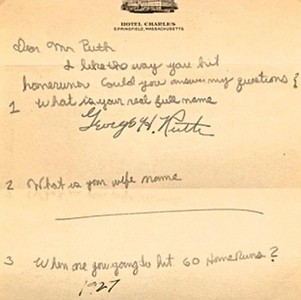 HOTEL CHARLES
SPRINGFIELD, MASSACHUSETTS
Dear Mr Ruth
I like the way you hit
homeruns Could you answer my questions
1 What is your real full name
George H. Ruth
2 What is your wife name
3 When are you going to hit 60 HomeRuns?
1927